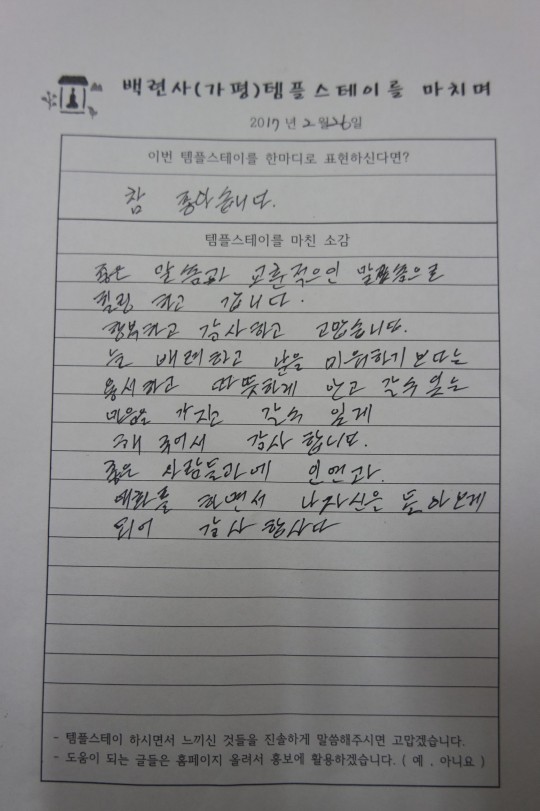 백련사(가평)템플스테이를 마치며
2017년 2월26일
이번 템플스테이를 한마디로 표현하신다면?
참 좋아습니다.
템플스테이를 마친 소감
좋은 말씀과 교훈적으인 말씀으로
힐링 하고 갑니다.
행복하고 감사하고 고맙습니다.
늘 배려하고 남을 미워하기보다는
용서하고 따뜻하게 안고 갈수 있는
마음을 가지고 갈수 있게
해 주어서 감사 합니다.
좋은 사람들과에 인연과
대화를 하면서 나자신은 돌아보게
되어 감사합니다
- 템플스테이 하시면서 느끼신 것들을 진솔하게 말씀해주시면 고맙겠습니다.
- 도움이 되는 글들은 홈페이지 올려서 홍보에 활용하겠습니다. ( 예 , 아니요 )